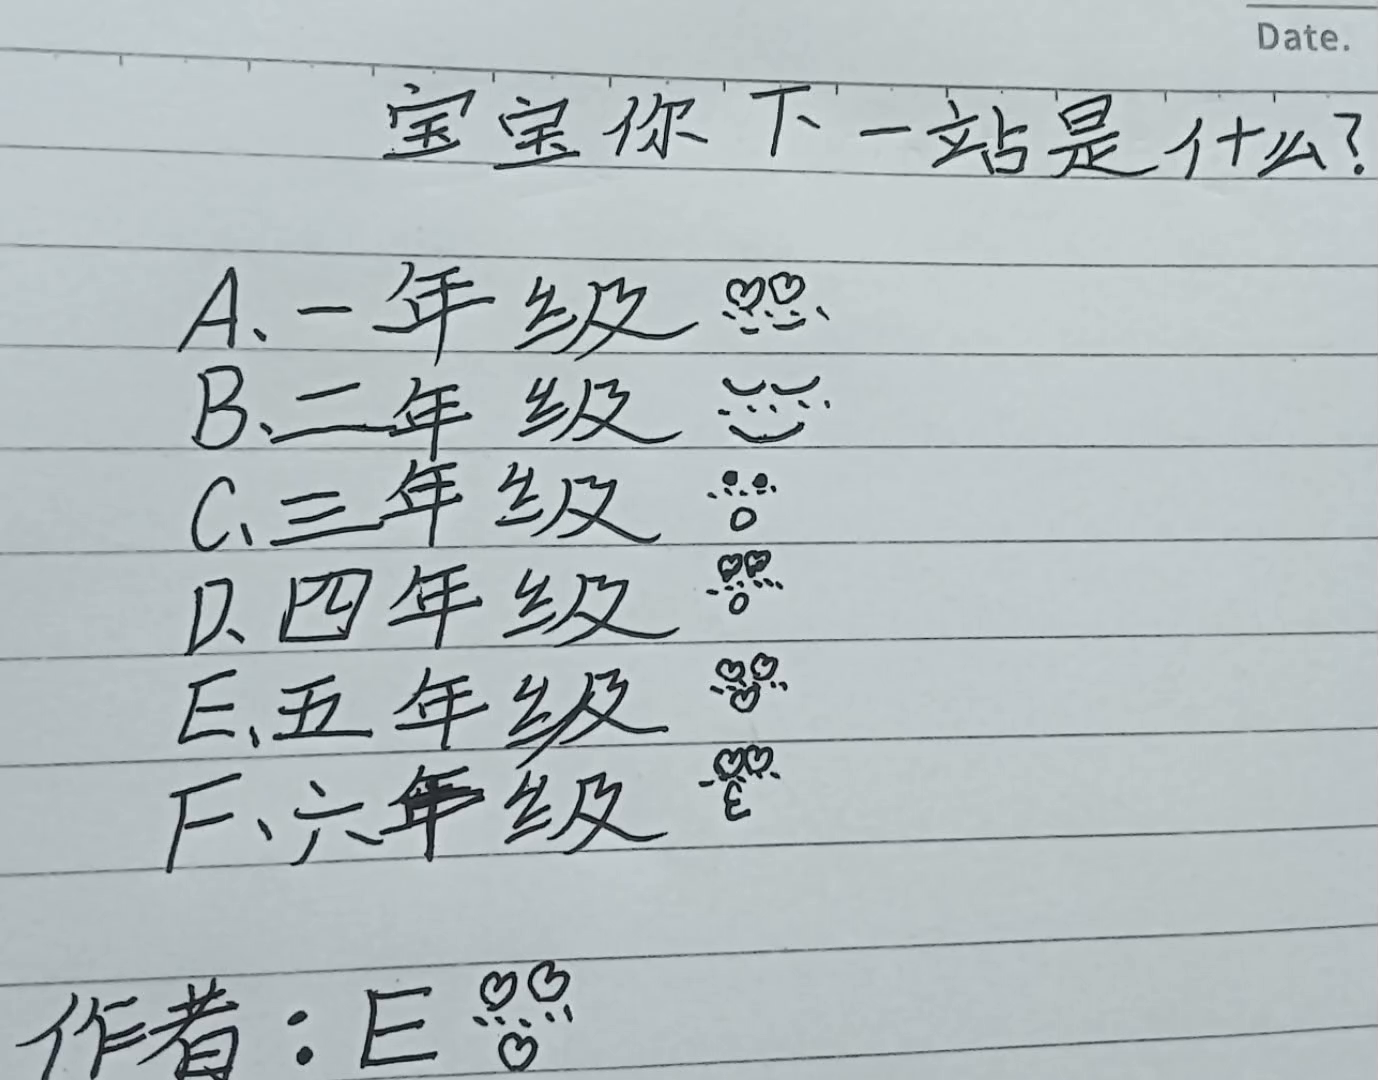 Date.
宝宝你下一站是什么?
A、一年级
B、二年级
C、三年级
D、四年级
E、五年级
F、六年级
作者:E